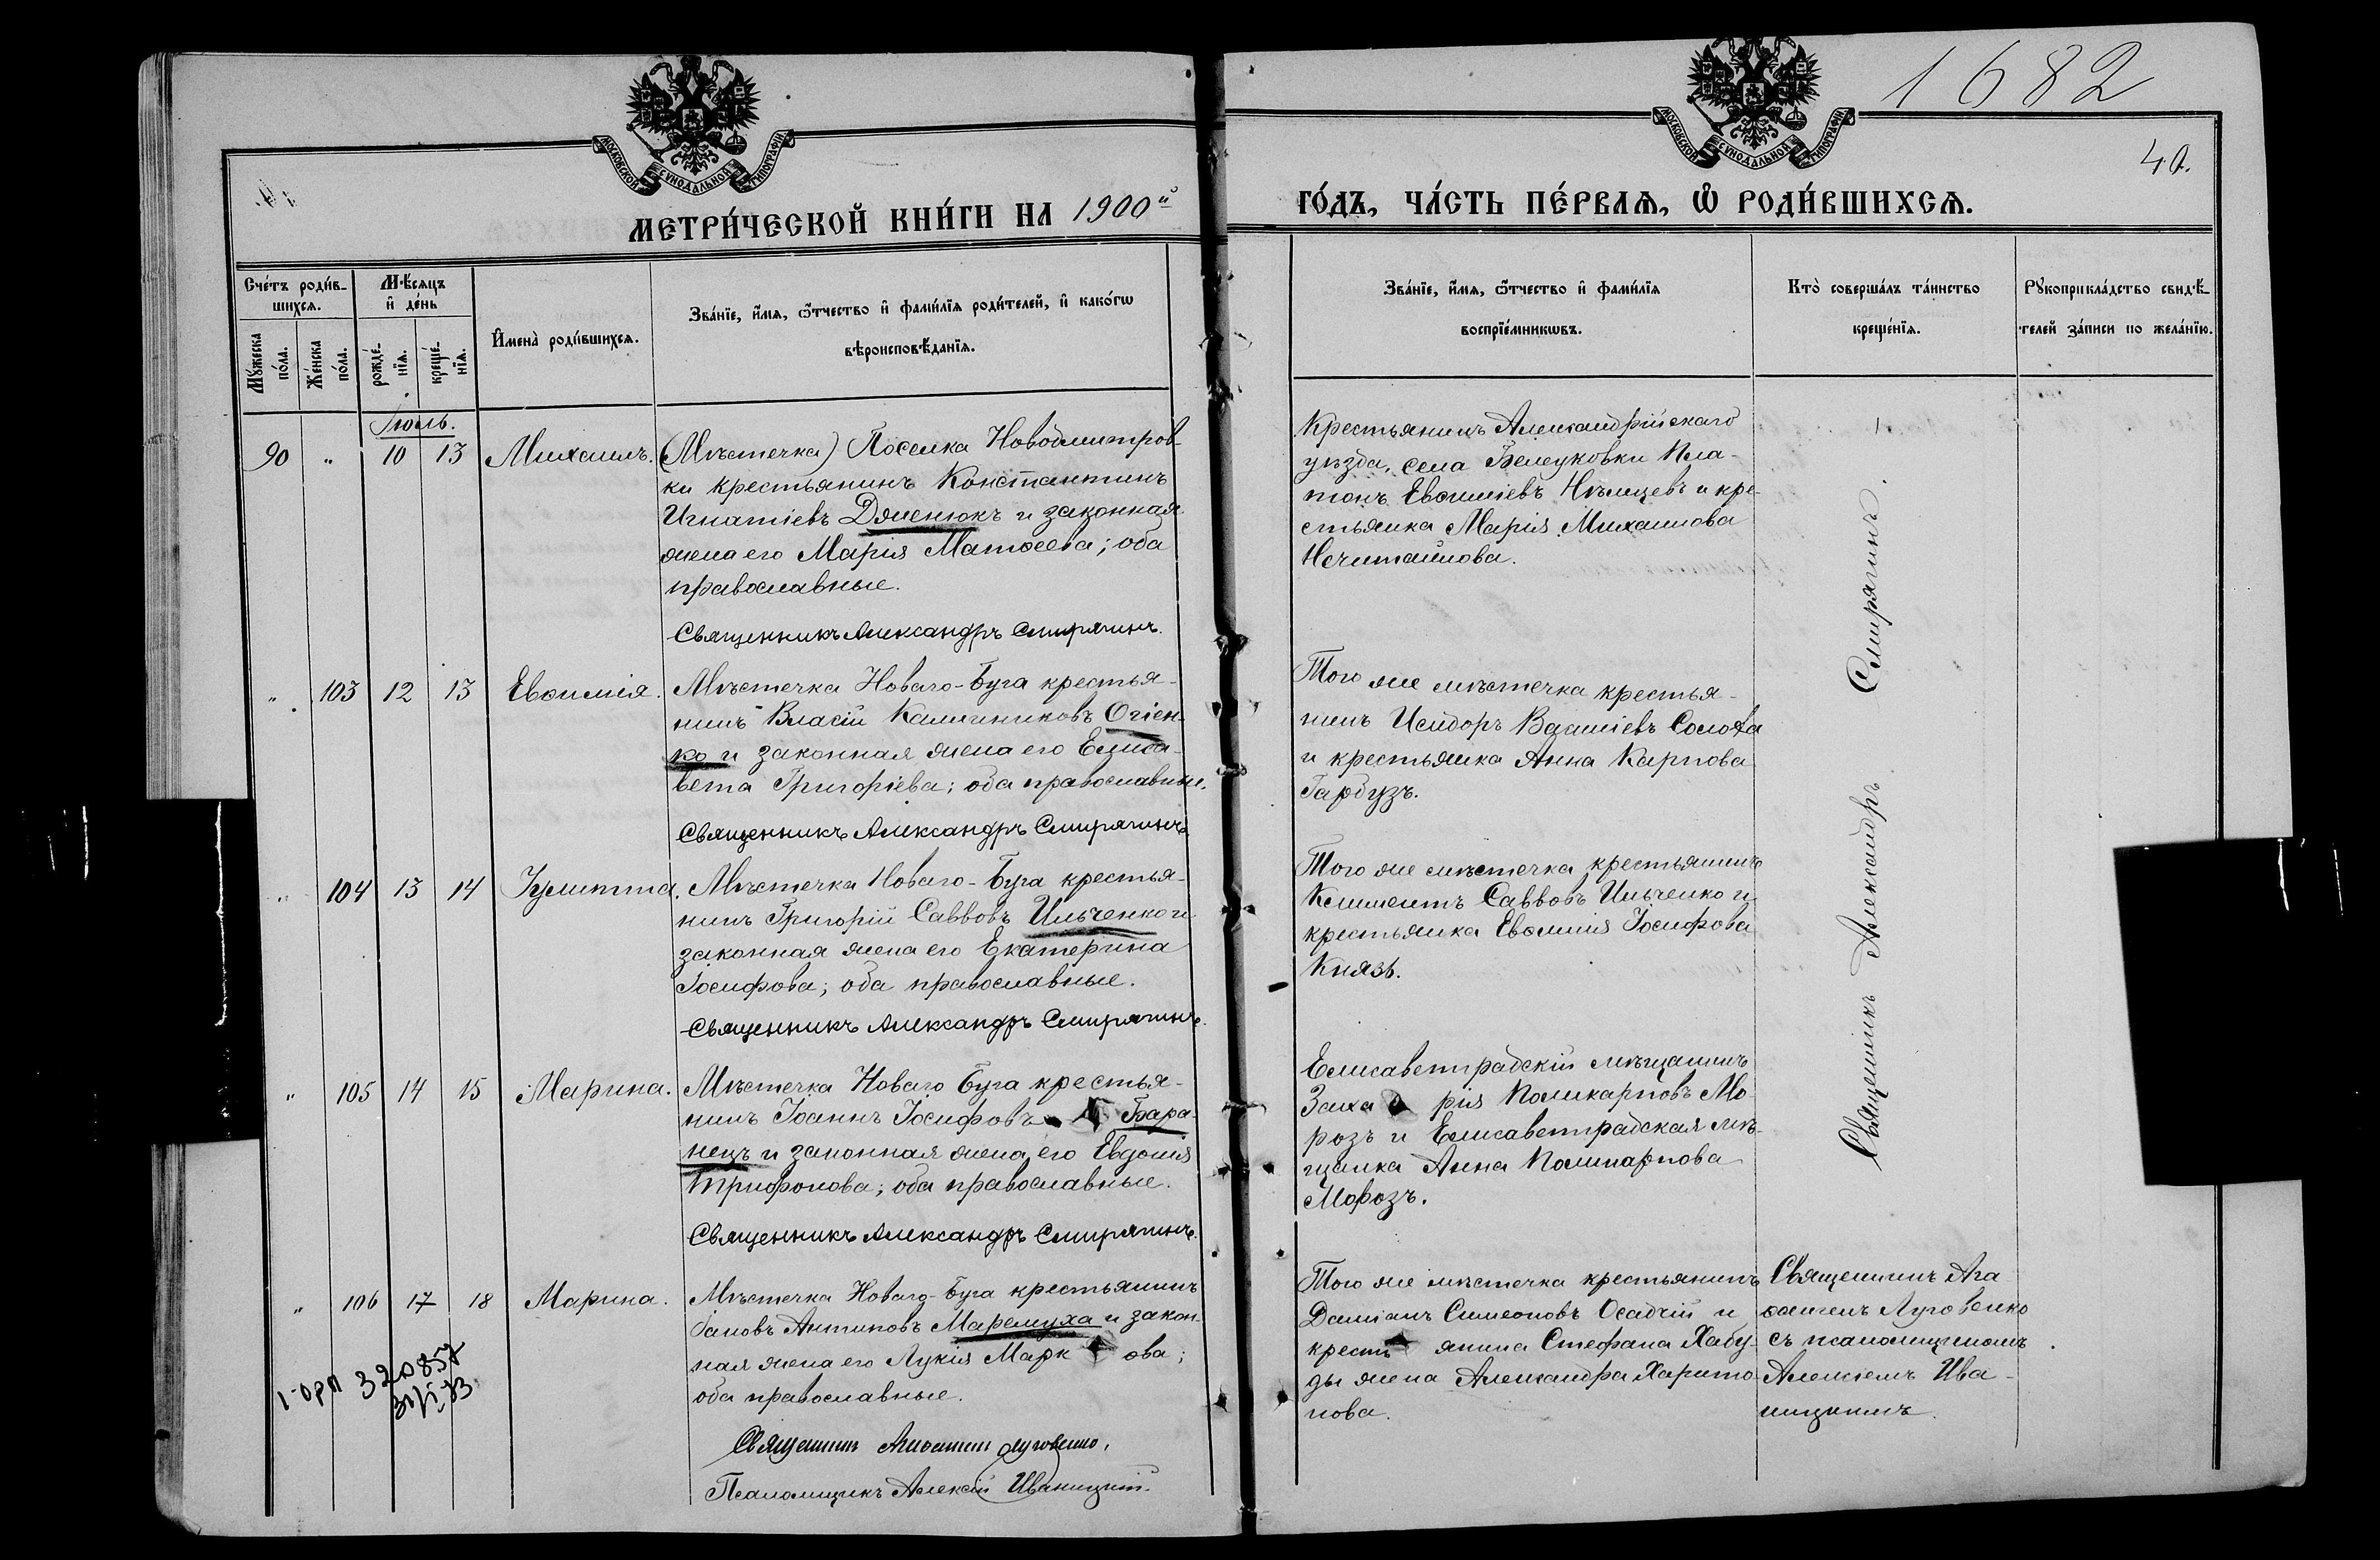 1682
40.
МОСКОВСКОЙ СѴНОДАЛЬНОЙ ТИПОГРАФІИ
МОСКОВСКОЙ СѴНОДАЛЬНОЙ ТИПОГРАФІИ
МЕТРИ́ЧЕСКОЙ КНИ́ГИ НА 1900й
ГО́ДЪ, ЧА́СТЬ ПЕ́РВАѦ, Ѡ РОДИ́ВШИХСѦ.
Сче́тъ роди́в-
шихсѧ.
Мꙋ́жеска
по́ла.
Же́нска
по́ла.
Мѣ́сѧцъ
и҆ де́нь
рожде́-
нїѧ.
креще́-
нїѧ.
И҆мена̀ роди́вшихсѧ.
Зва́нїе, и҆́мѧ, ѻ҆́тчество и҆ фами́лїѧ роди́телей, и҆ како́гѡ
вѣроисповѣ́данїѧ.
Зва́нїе, и҆́мѧ, ѻ҆́тчество и҆ фами́лїѧ
воспрїе́мникѡвъ.
Кто̀ соверша́лъ та́инство
креще́нїѧ.
Рꙋкоприкла́дство свидѣ́-
телей за́писи по жела́нїю.
Іюль.
90 " 10 13 Михаилъ.
(Мѣстечка) Поселка Новодмитров-
ки крестьянинъ Константинъ
Игнатіевъ Дяченюкъ и законная
жена его Марія Матѳеева; оба
православные.
Священникъ Александръ Смирягинъ.
Крестьянинъ Александрійскаго
уѣзда, села Белецковки Пла-
тонъ Евѳиміевъ Нѣмцевъ и кре-
стьянка Марія Михаилова
Нечитайлова.
" 103 12 13 Евѳимія.
Мѣстечка Новаго-Буга крестья-
нинъ Власій Калинниковъ Огіен-
ко и законная жена его Елиса-
вета Григоріева; оба православные.
Священникъ Александръ Смирягинъ.
Того же мѣстечка крестья-
нинъ Исидоръ Василіевъ Солова
и крестьянка Анна Карпова
Гарбузъ.
" 104 13 14 Іулитта.
Мѣстечка Новаго-Буга крестья-
нинъ Григорій Саввовъ Ильченко и
законная жена его Екатерина
Іосифова; оба православные.
Священникъ Александръ Смирягинъ.
Того же мѣстечка крестьянинъ
Климентъ Саввовъ Ильченко и
крестьянка Евѳимія Іосифова
Князь.
" 105 14 15 Марина.
Мѣстечка Новаго Буга крестья-
нинъ Іоаннъ Іосифовъ Бара-
нецъ и законная жена его Евдокія
Трифонова; оба православные.
Священникъ Александръ Смирягинъ.
Елисаветградскій мѣщанинъ
Заха рія Поликарповъ Мо-
розъ и Елисаветградская мѣ-
щанка Анна Поликарпова
Морозъ.
Священникъ Александръ Смирягинъ.
" 106 17 18 Марина.
Мѣстечка Новаго-Буга крестьянинъ
Іаковъ Антиповъ Маремуха и закон-
ная жена его Лукія Марк ова;
оба православные.
Священникъ Агаѳангелъ Луговенко,
Псаломщикъ Алексій Иваницкій.
Того же мѣстечка крестьянинъ
Даміанъ Симеоновъ Осадчій и
кресть янина Стефана Хабу-
ды жена Александра Харито-
нова.
Священникъ Ага
ѳангелъ Луговенко
съ псаломщикомъ
Алексіемъ Ива-
ницкимъ.
320857